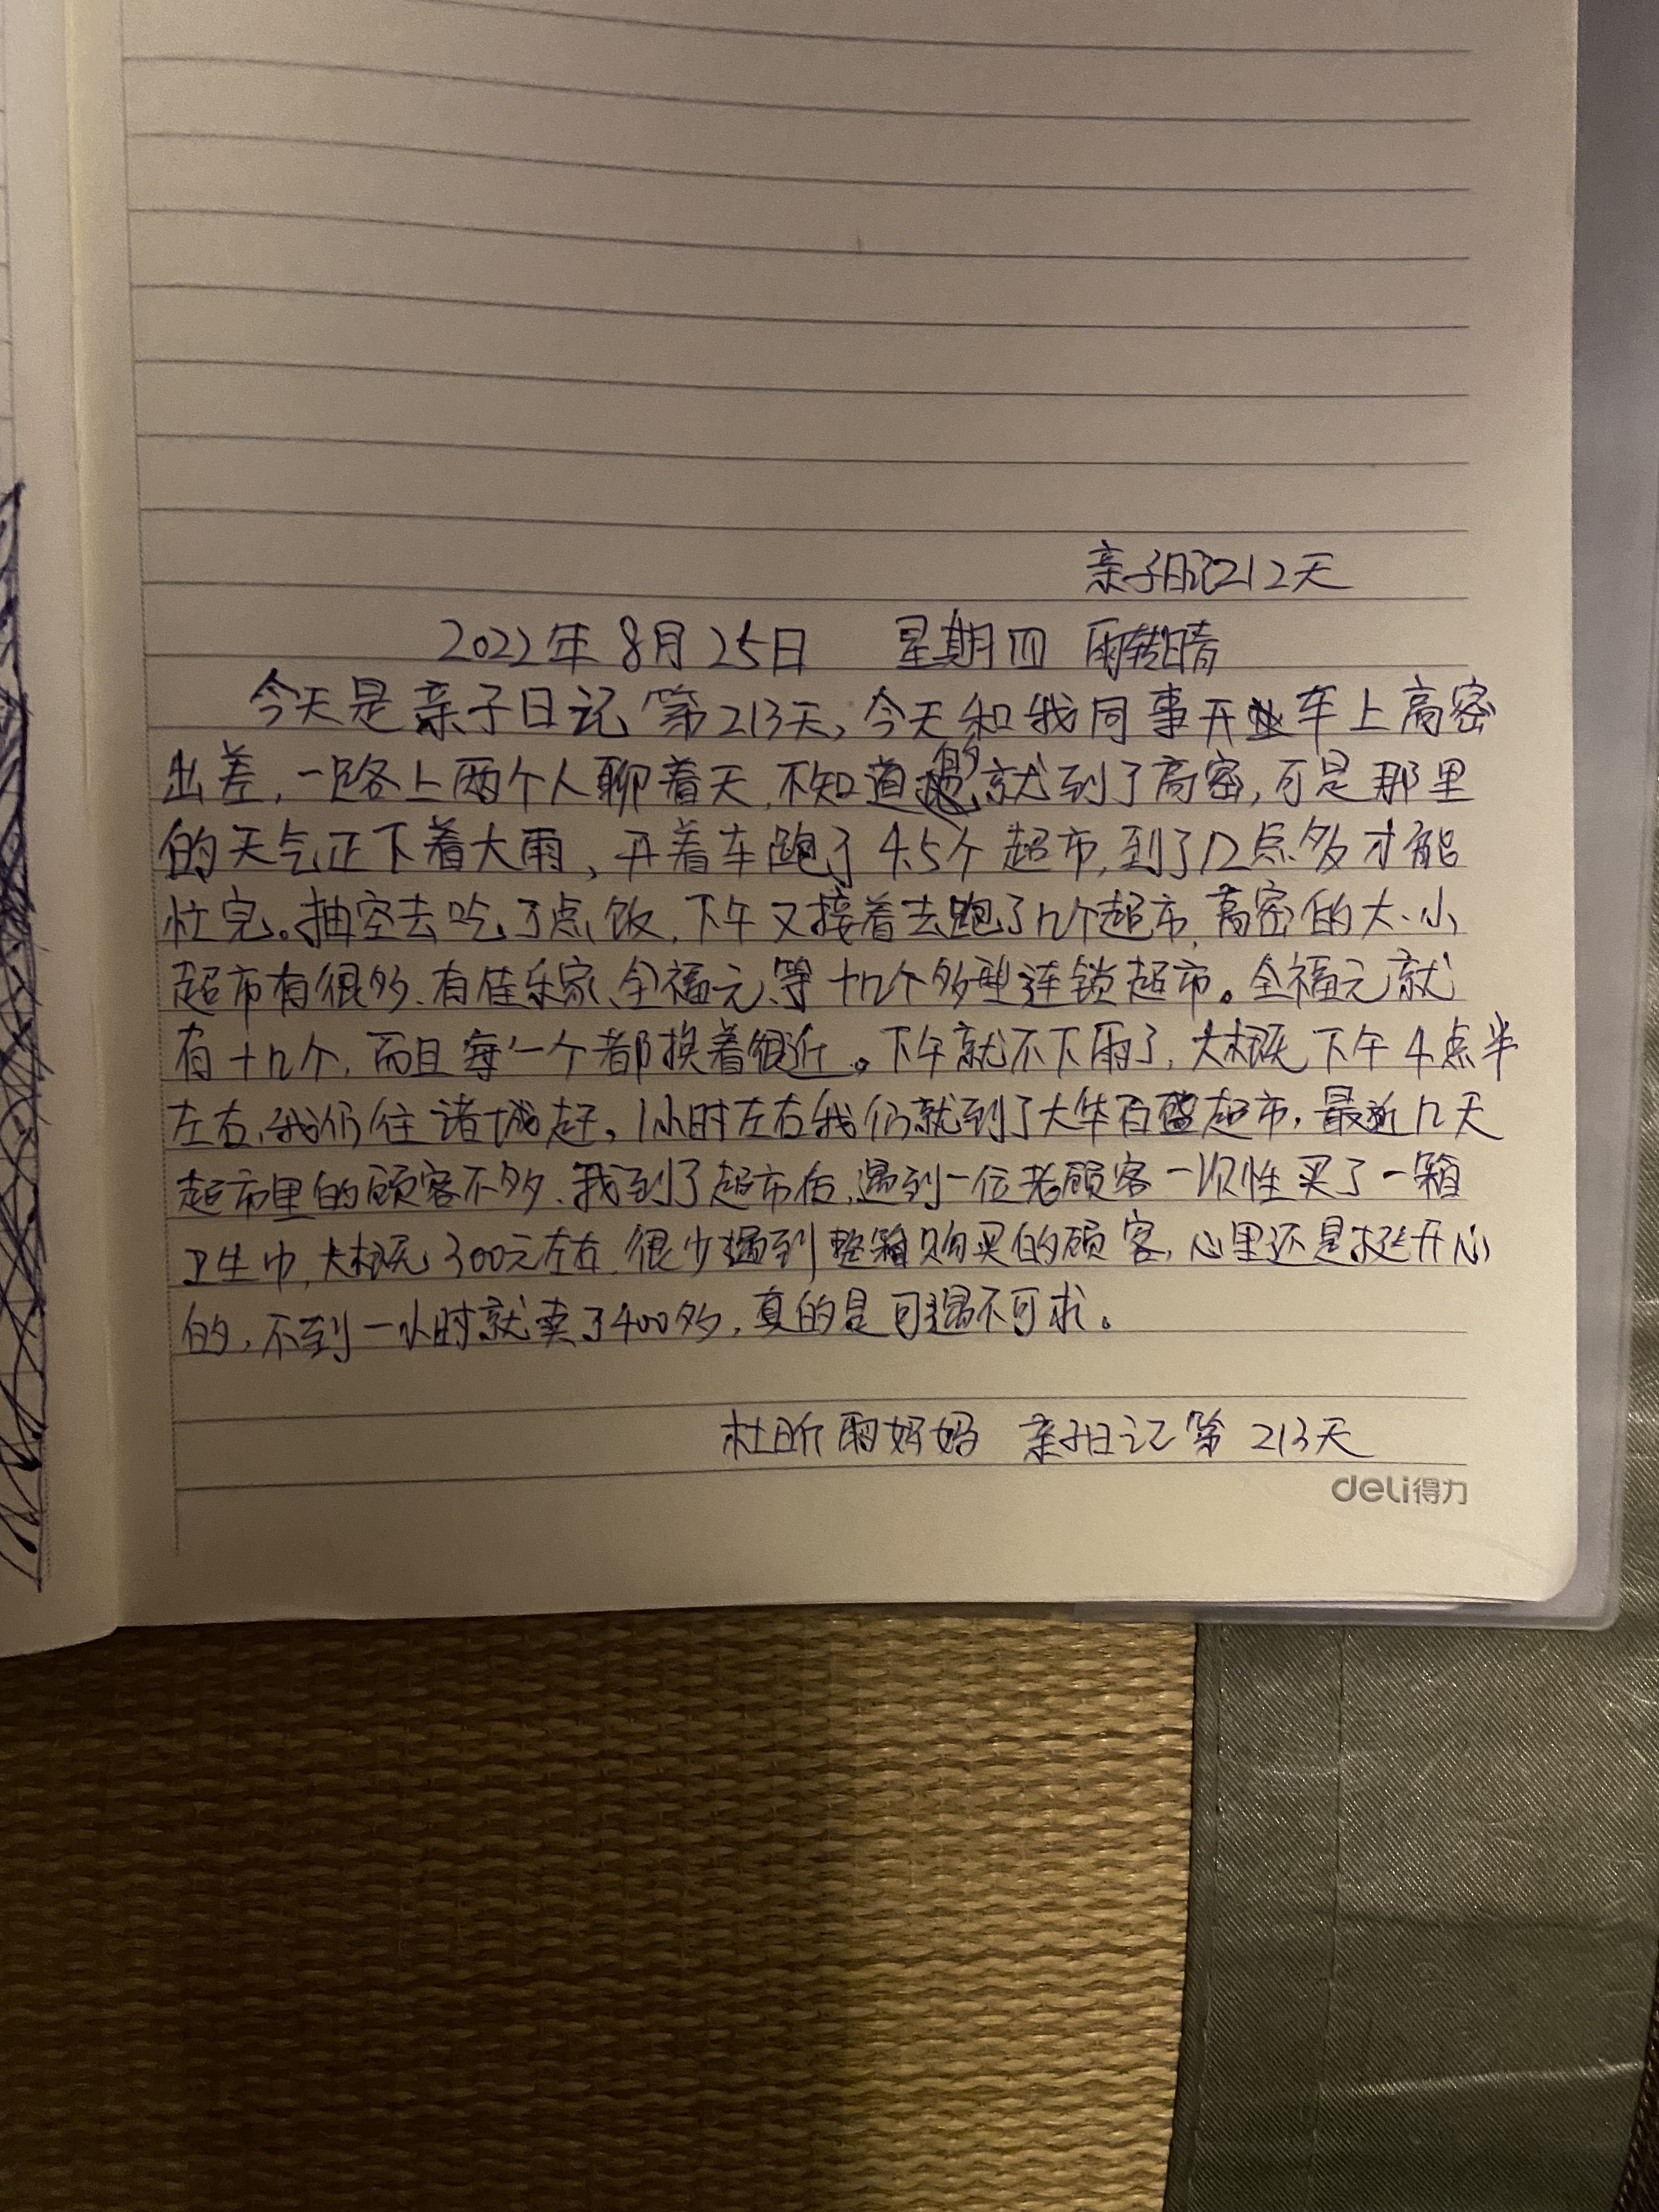 亲子日记212天
2022年8月25日 星期四 雨转晴
今天是亲子日记第213天,今天和我同事开车上高密
出差,一路上两个人聊着天,不知道的就到了高密,可是那里
的天气正下着大雨,开着车跑了4.5个超市,到了12点多才能
忙完。抽空去吃了点饭,下午又接着去跑了几个超市,高密的大、小
超市有很多、有佳乐家、全福元、等十几个多型连锁超市。全福元就
有十几个,而且每一个都挨着很近。下午就不下雨了,大概下午4点半
左右,我们往诸城赶,1小时左右我们就到了大华百盛超市,最近几天
超市里的顾客不多、我到了超市后,遇到一位老顾客一次性买了一箱
卫生巾,大概300元左右,很少遇到整箱购买的顾客,心里还是挺开心
的,不到一小时就卖了400多,真的是可遇不可求。
杜昕雨妈妈 亲子日记第213天
deli得力